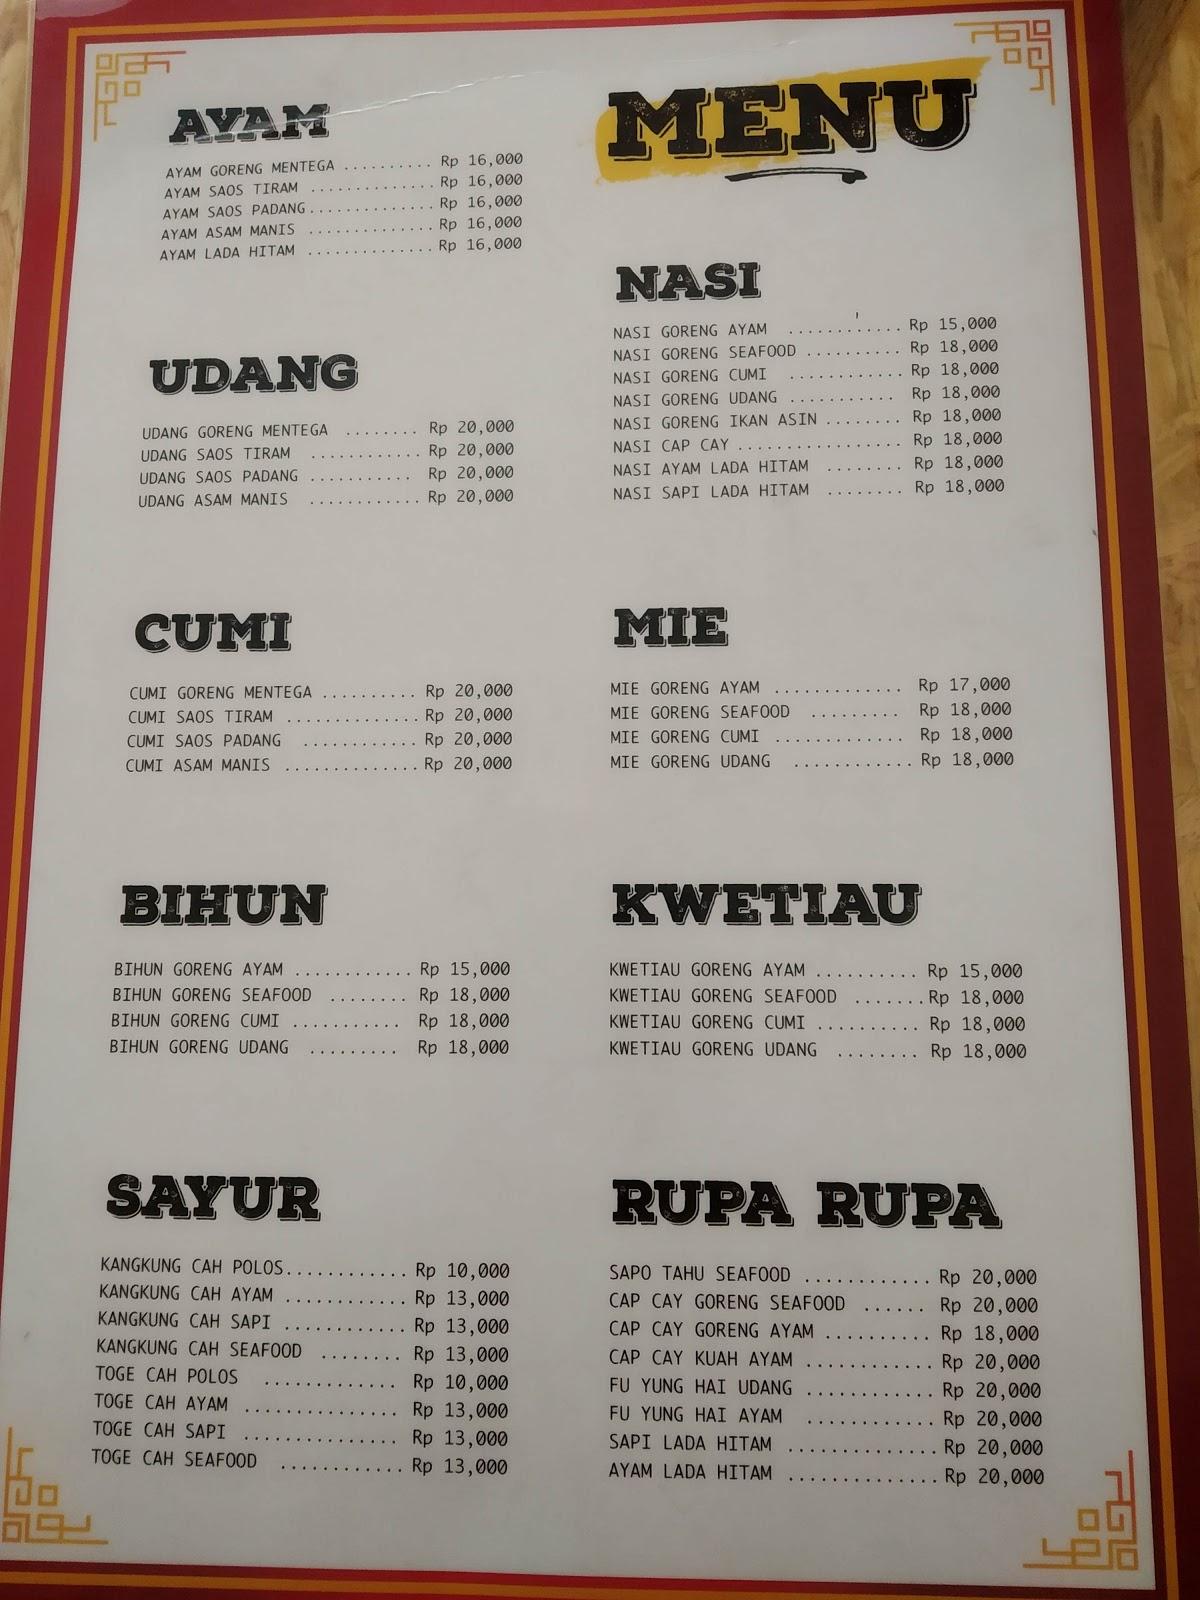 MENU
AYAM
AYAM GORENG MENTEGA .......... Rp 16,000
AYAM SAOS TIRAM .............. Rp 16,000
AYAM SAOS PADANG.............. Rp 16,000
AYAM ASAM MANIS .............. Rp 16,000
AYAM LADA HITAM .............. Rp 16,000
UDANG
UDANG GORENG MENTEGA ........ Rp 20,000
UDANG SAOS TIRAM ............ Rp 20,000
UDANG SAOS PADANG ........... Rp 20,000
UDANG ASAM MANIS ............ Rp 20,000
CUMI
CUMI GORENG MENTEGA .......... Rp 20,000
CUMI SAOS TIRAM .............. Rp 20,000
CUMI SAOS PADANG ............ Rp 20,000
CUMI ASAM MANIS .............. Rp 20,000
BIHUN
BIHUN GORENG AYAM ............ Rp 15,000
BIHUN GORENG SEAFOOD ........ Rp 18,000
BIHUN GORENG CUMI ........... Rp 18,000
BIHUN GORENG UDANG ......... Rp 18,000
SAYUR
KANGKUNG CAH POLOS............ Rp 10,000
KANGKUNG CAH AYAM ............ Rp 13,000
KANGKUNG CAH SAPI ............ Rp 13,000
KANGKUNG CAH SEAFOOD ........ Rp 13,000
TOGE CAH POLOS ............. Rp 10,000
TOGE CAH AYAM ............... Rp 13,000
TOGE CAH SAPI ............... Rp 13,000
TOGE CAH SEAFOOD ............ Rp 13,000
NASI
NASI GORENG AYAM ............ Rp 15,000
NASI GORENG SEAFOOD .......... Rp 18,000
NASI GORENG CUMI ............ Rp 18,000
NASI GORENG UDANG ........... Rp 18,000
NASI GORENG IKAN ASIN ........ Rp 18,000
NASI CAP CAY ................. Rp 18,000
NASI AYAM LADA HITAM ........ Rp 18,000
NASI SAPI LADA HITAM ........ Rp 18,000
MIE
MIE GORENG AYAM ............. Rp 17,000
MIE GORENG SEAFOOD ......... Rp 18,000
MIE GORENG CUMI ............. Rp 18,000
MIE GORENG UDANG ............ Rp 18,000
KWETIAU
KWETIAU GORENG AYAM .......... Rp 15,000
KWETIAU GORENG SEAFOOD ....... Rp 18,000
KWETIAU GORENG CUMI .......... Rp 18,000
KWETIAU GORENG UDANG ........ Rp 18,000
RUPA RUPA
SAPO TAHU SEAFOOD ............ Rp 20,000
CAP CAY GORENG SEAFOOD ...... Rp 20,000
CAP CAY GORENG AYAM .......... Rp 18,000
CAP CAY KUAH AYAM ............ Rp 20,000
FU YUNG HAI UDANG ............ Rp 20,000
FU YUNG HAI AYAM ............ Rp 20,000
SAPI LADA HITAM .............. Rp 20,000
AYAM LADA HITAM .............. Rp 20,000